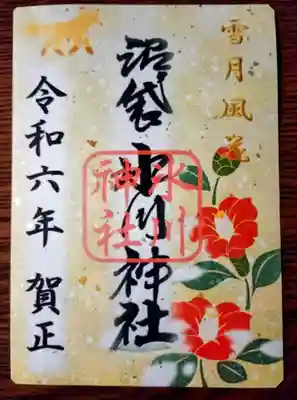 雪月風花
沼袋氷川神社
氷川
神社
令和六年 賀正